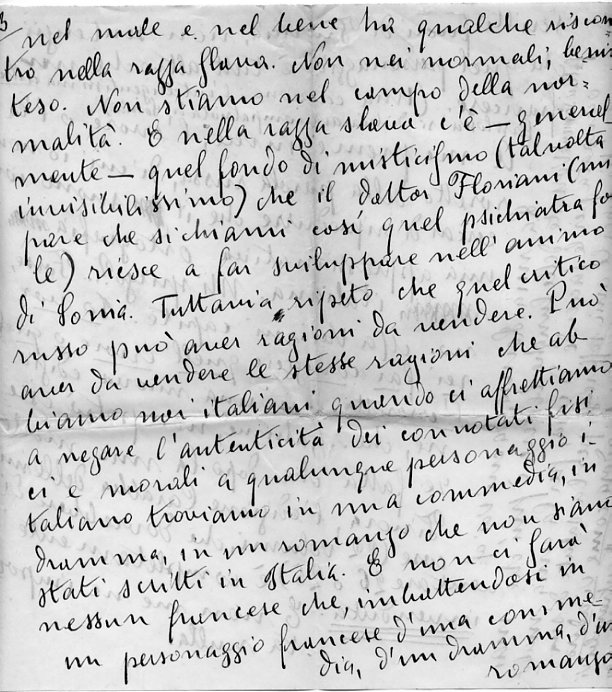 3
nel male e nel bene ha qualche riscon
tro nella razza slava. Non nei normali, beni
teso. Non stiamo nel campo della nor=
malità. E nella razza slava c'è — general
mente — quel fondo di misticismo (talvolta
invisibilissimo) che il dottor Floriani (mi
pare che si chiami così quel psichiatra fo
le) riesce a far sviluppare nell'animo
di Sonia. Tuttavia ripeto che quel critico
russo può aver ragioni da vendere. Può
aver da vendere le stesse ragioni che ab
biamo noi italiani quando ci affrettiamo
a negare l'autenticità dei connotati fisi
ci e morali a qualunque personaggio i=
taliano troviamo in una commedia, in
dramma, in un romanzo che non siano
stati scritti in Italia. E non ci sarà
nessun francese che, imbattendosi in
un personaggio francese d'una comme=
dia, d'un dramma, d'un
romanzo